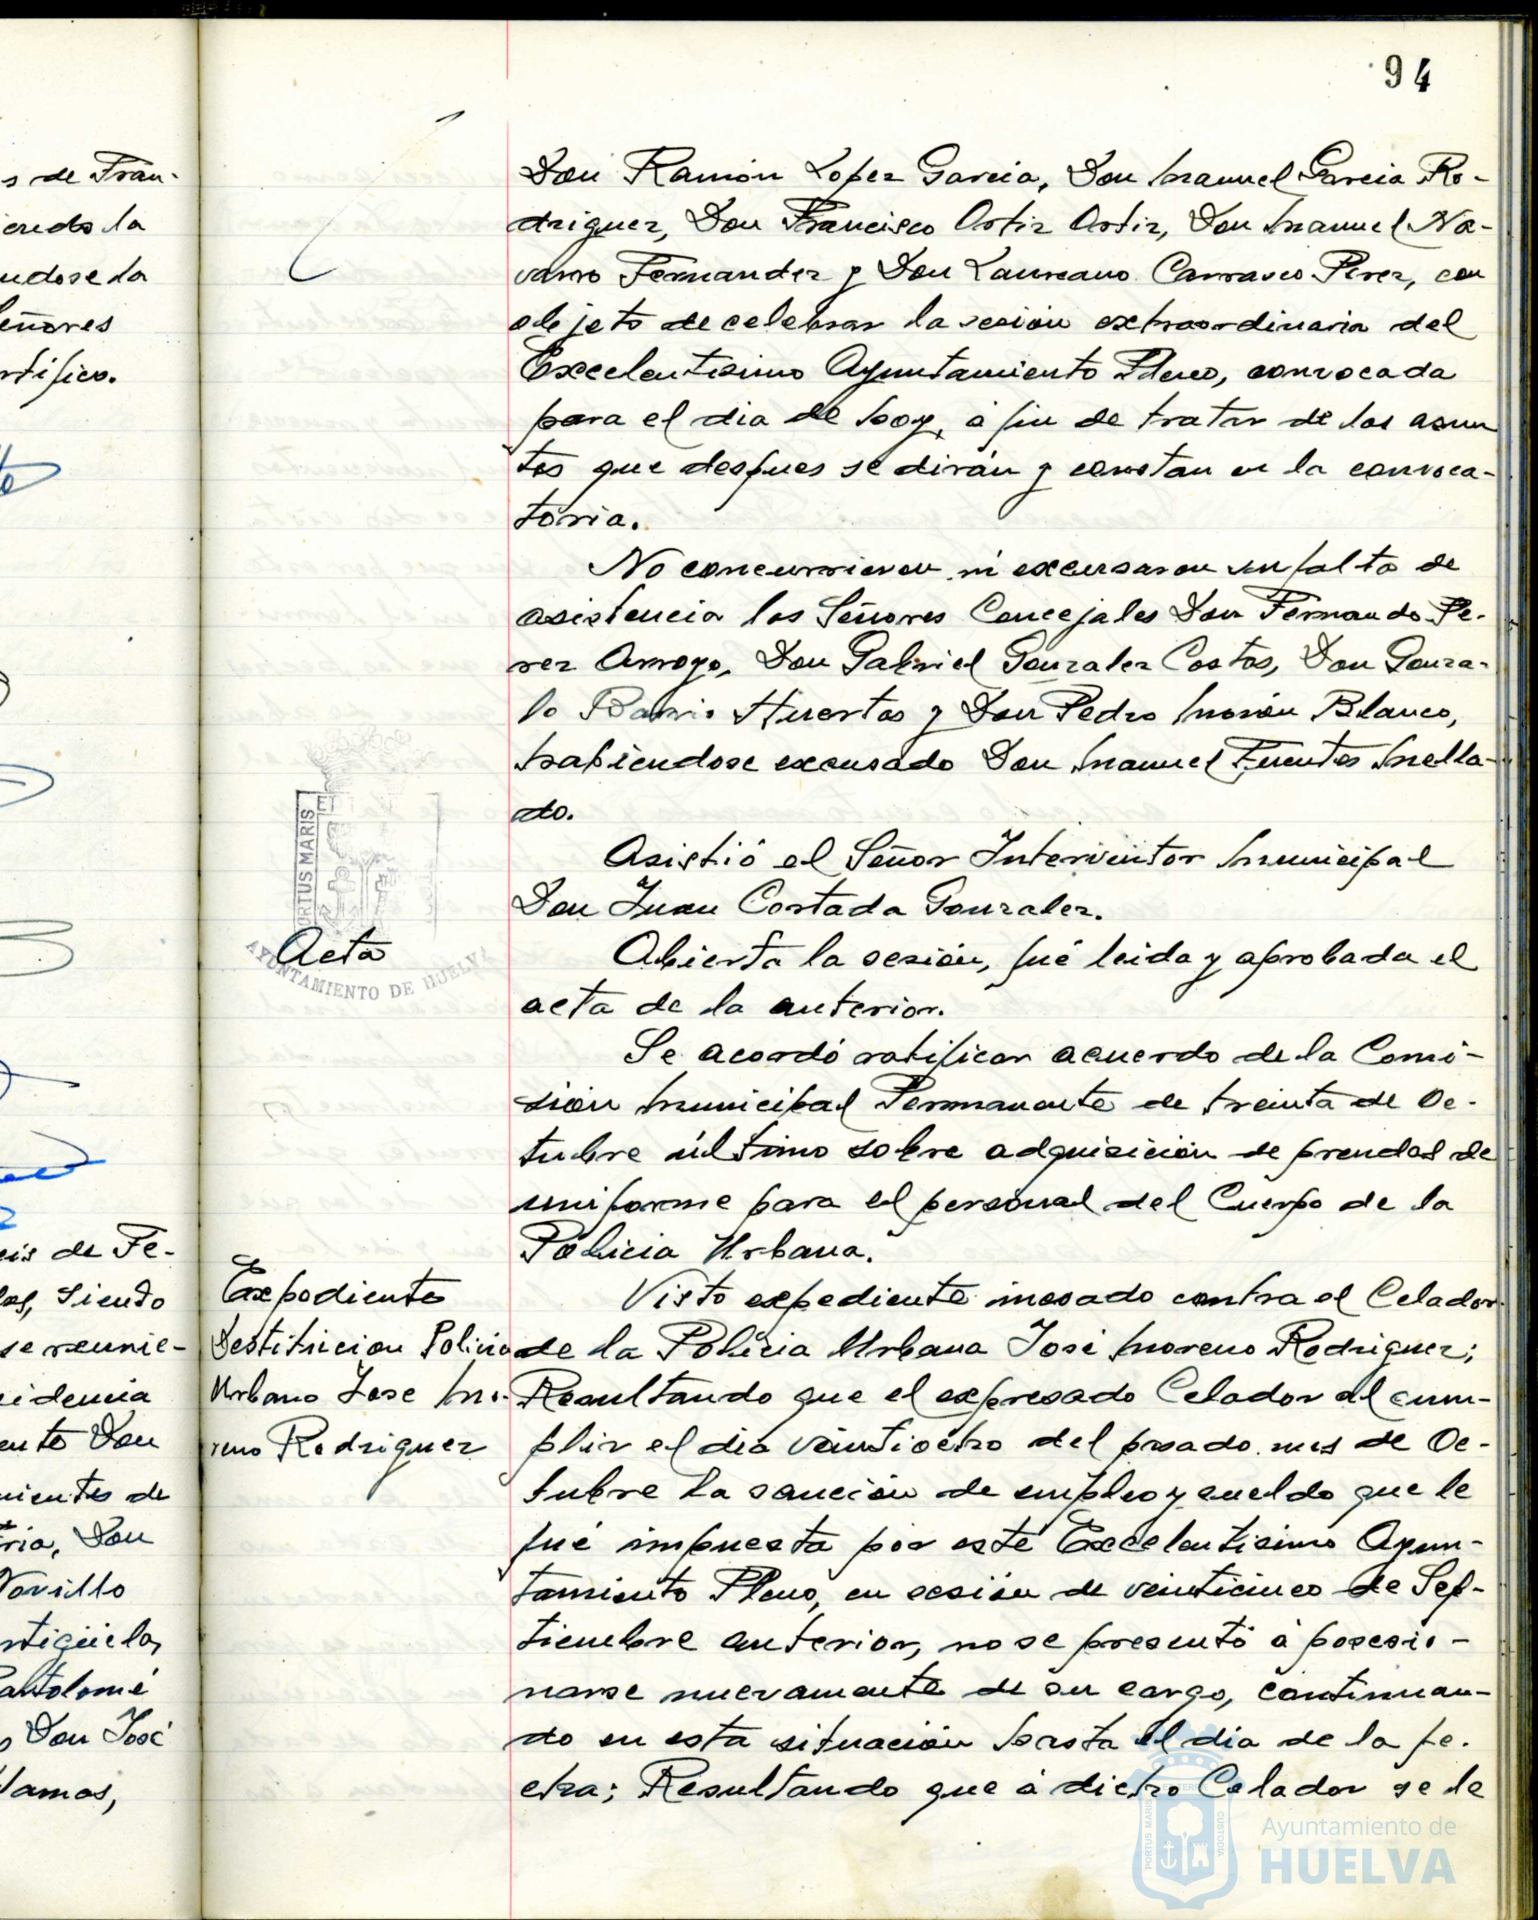 94
s de Fran-
iendo la
ndose la
eñores
rtifico.
eis de Fe-
los, siendo
se reunie-
sidencia
ente Don
nientes de
ria, Don
Novillo
rtigüela,
Bartolomé
s Don José
lamos,
PORTUS MARIS
ET
AYUNTAMIENTO DE HUELVA
Acta
Expediente
Destitucion Policia
Urbano Jose Mo-
reno Rodriguez
Don Ramón Lopez Garcia, Don Manuel Garcia Ro-
driguez, Don Francisco Ortiz Ortiz, Don Manuel Na-
varro Fernandez y Don Laureano Carrasco Perez, con
objeto de celebrar la sesión extraordinaria del
Excelentisimo Ayuntamiento Pleno, convocada
para el dia de hoy, á fin de tratar de los asun
tos que despues se dirán y constan en la convoca-
toria.
No concurrieron ni excusaron su falta de
asistencia los Señores Concejales Don Fernando Pe-
rez Arroyo, Don Gabriel Gonzalez Costas, Don Gonza-
lo Barri. Huertas y Don Pedro Morón Blanco,
habiendose excusado Don Manuel Fuentes Mella-
do.
Asistió el Señor Interventor Municipal
Don Juan Cortada Gonzalez.
Abierta la sesión, fué leida y aprobada el
acta de la anterior.
Se acordó ratificar acuerdo de la Comi-
sión Municipal Permanente de treinta de Oc-
tubre último sobre adquisición de prendas de
uniforme para el personal del Cuerpo de la
Policia Urbana.
Visto expediente incoado contra el Celador
de la Policia Urbana José Moreno Rodriguez;
Resultando que el expresado Celador al cum-
plir el dia veintiocho del pasado mes de Oc-
tubre la sanción de empleo y sueldo que le
fué impuesta por este Excelentisimo Ayun-
tamiento Pleno, en sesión de veinticinco de Sep-
tiembre anterior, no se presentó á posesio-
narse nuevamente de su cargo, continuan-
do en esta situación hasta el dia de la fe-
cha; Resultando que á dicho Celador se le
PORTUS MARIS
CUSTODIA
Ayuntamiento de
HUELVA